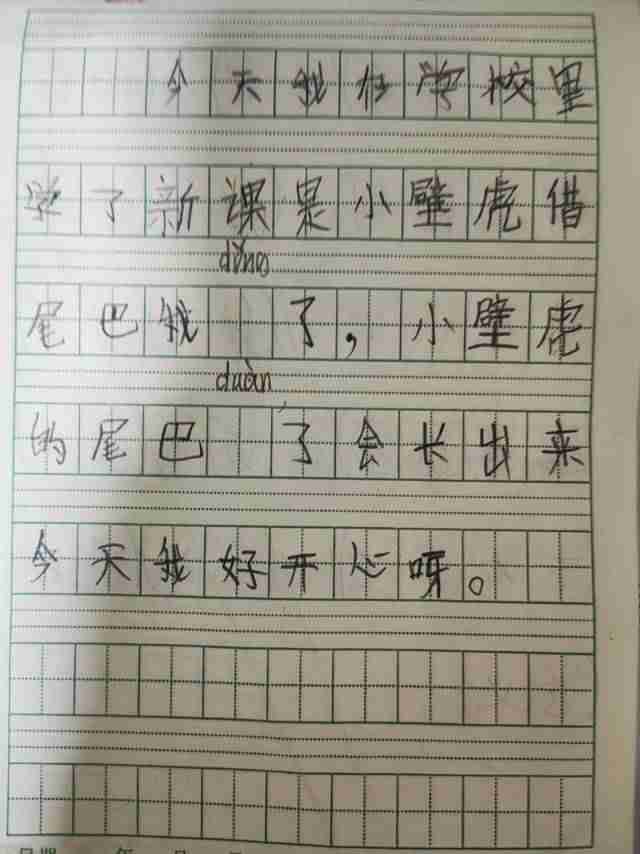 今天我在学校里
学了新课是小壁虎借
dǒng
尾巴我 了，小壁虎
duàn
的尾巴 了会长出来
今天我好开心呀。